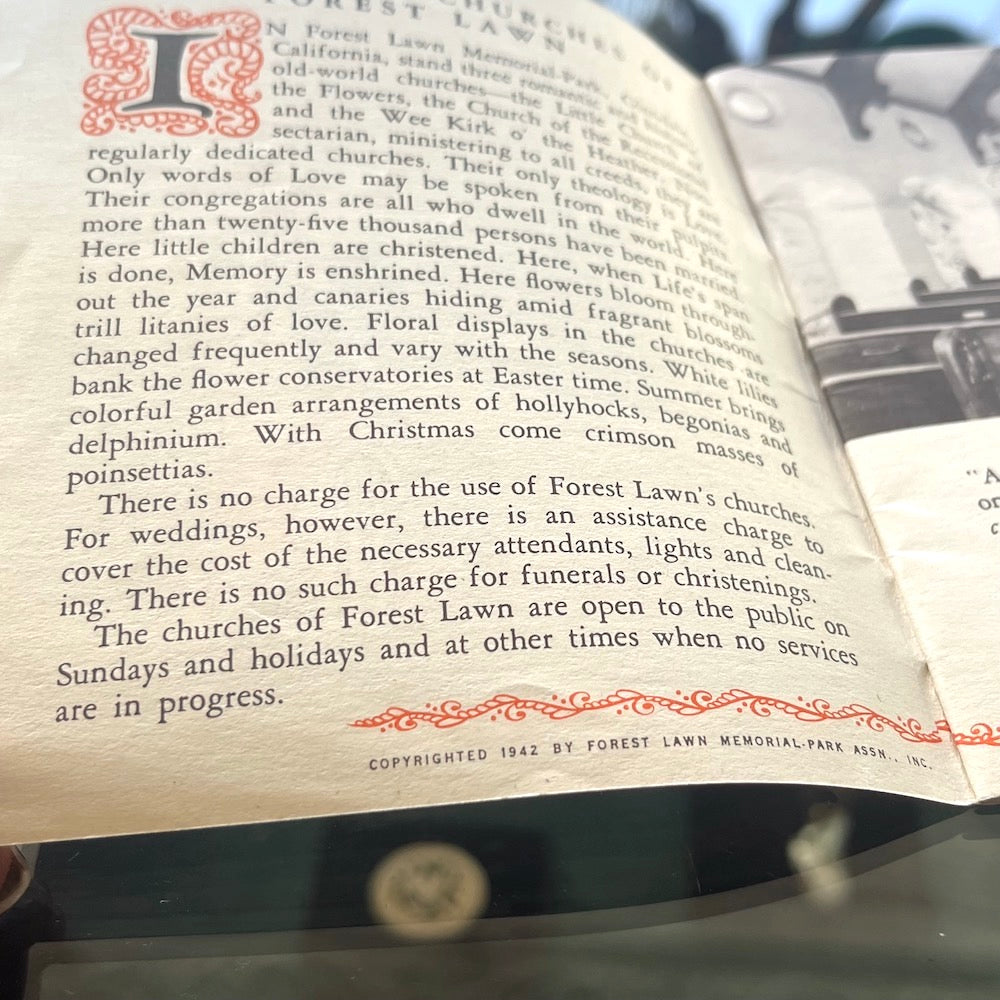 CHURCHES OF
FOREST LAWN
IN Forest Lawn Memorial-Park, Glendale,
California, stand three romantic and historic
old-world churches—the Little Church of
the Flowers, the Church of the Recessional
and the Wee Kirk o' the Heather. Non-
sectarian, ministering to all creeds, they are
regularly dedicated churches. Their only theology is Love.
Only words of Love may be spoken from their pulpits.
Their congregations are all who dwell in the world. Here
more than twenty-five thousand persons have been married.
Here little children are christened. Here, when Life's span
is done, Memory is enshrined. Here flowers bloom through-
out the year and canaries hiding amid fragrant blossoms
trill litanies of love. Floral displays in the churches are
changed frequently and vary with the seasons. White lilies
bank the flower conservatories at Easter time. Summer brings
colorful garden arrangements of hollyhocks, begonias and
delphinium. With Christmas come crimson masses of
poinsettias.
There is no charge for the use of Forest Lawn's churches.
For weddings, however, there is an assistance charge to
cover the cost of the necessary attendants, lights and clean-
ing. There is no such charge for funerals or christenings.
The churches of Forest Lawn are open to the public on
Sundays and holidays and at other times when no services
are in progress.
COPYRIGHTED 1942 BY FOREST LAWN MEMORIAL-PARK ASSN., INC.
"A
or
c